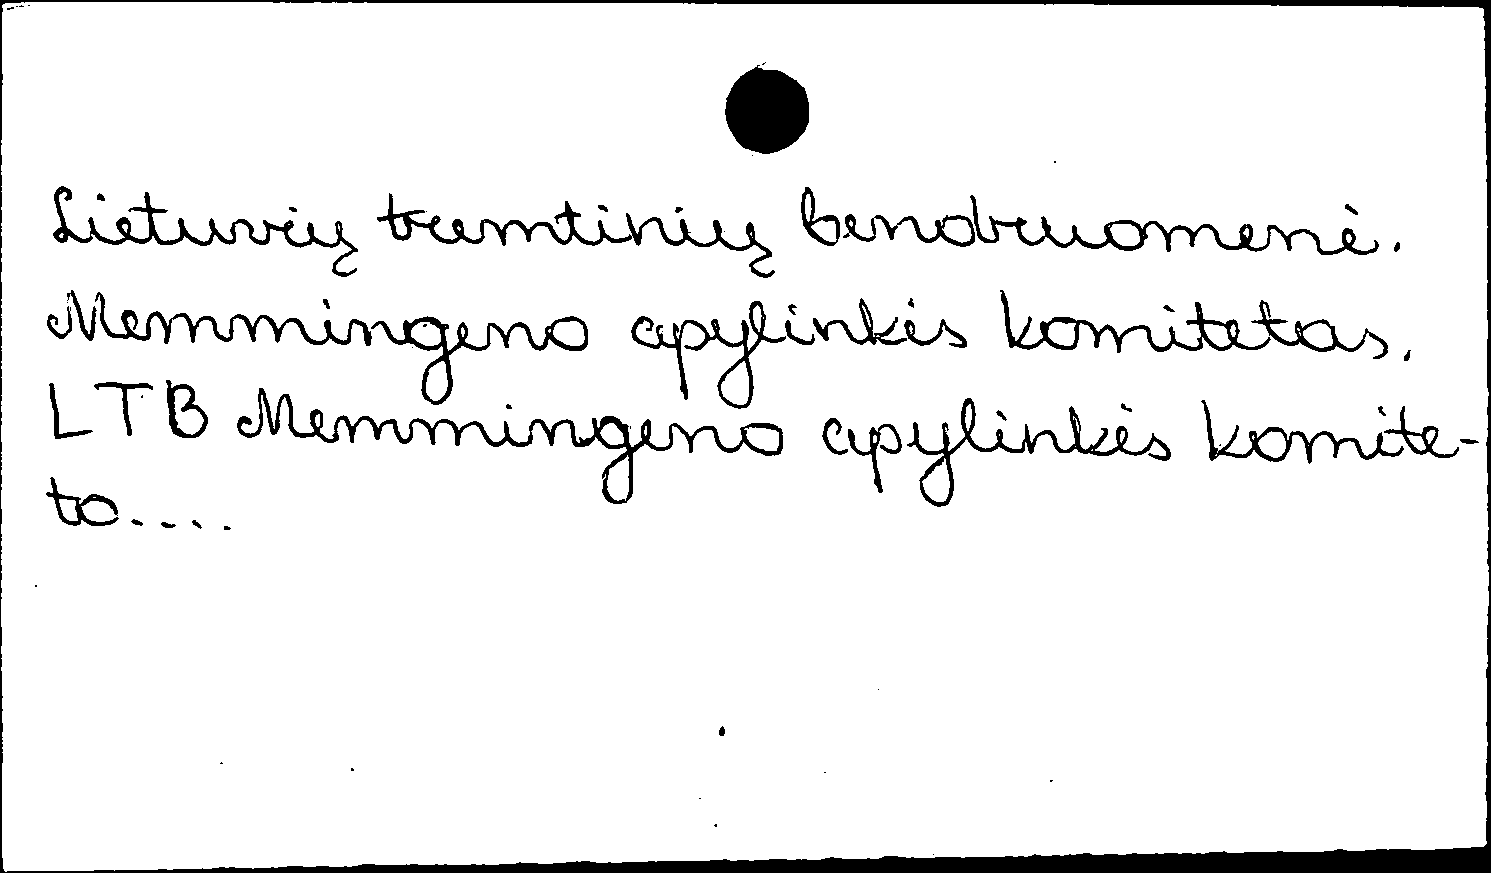 Lietuvių tremtinių bendruomenė.
Memmingeno apylinkės komitetas.
LTB Memmingeno apylinkės komite-
to....